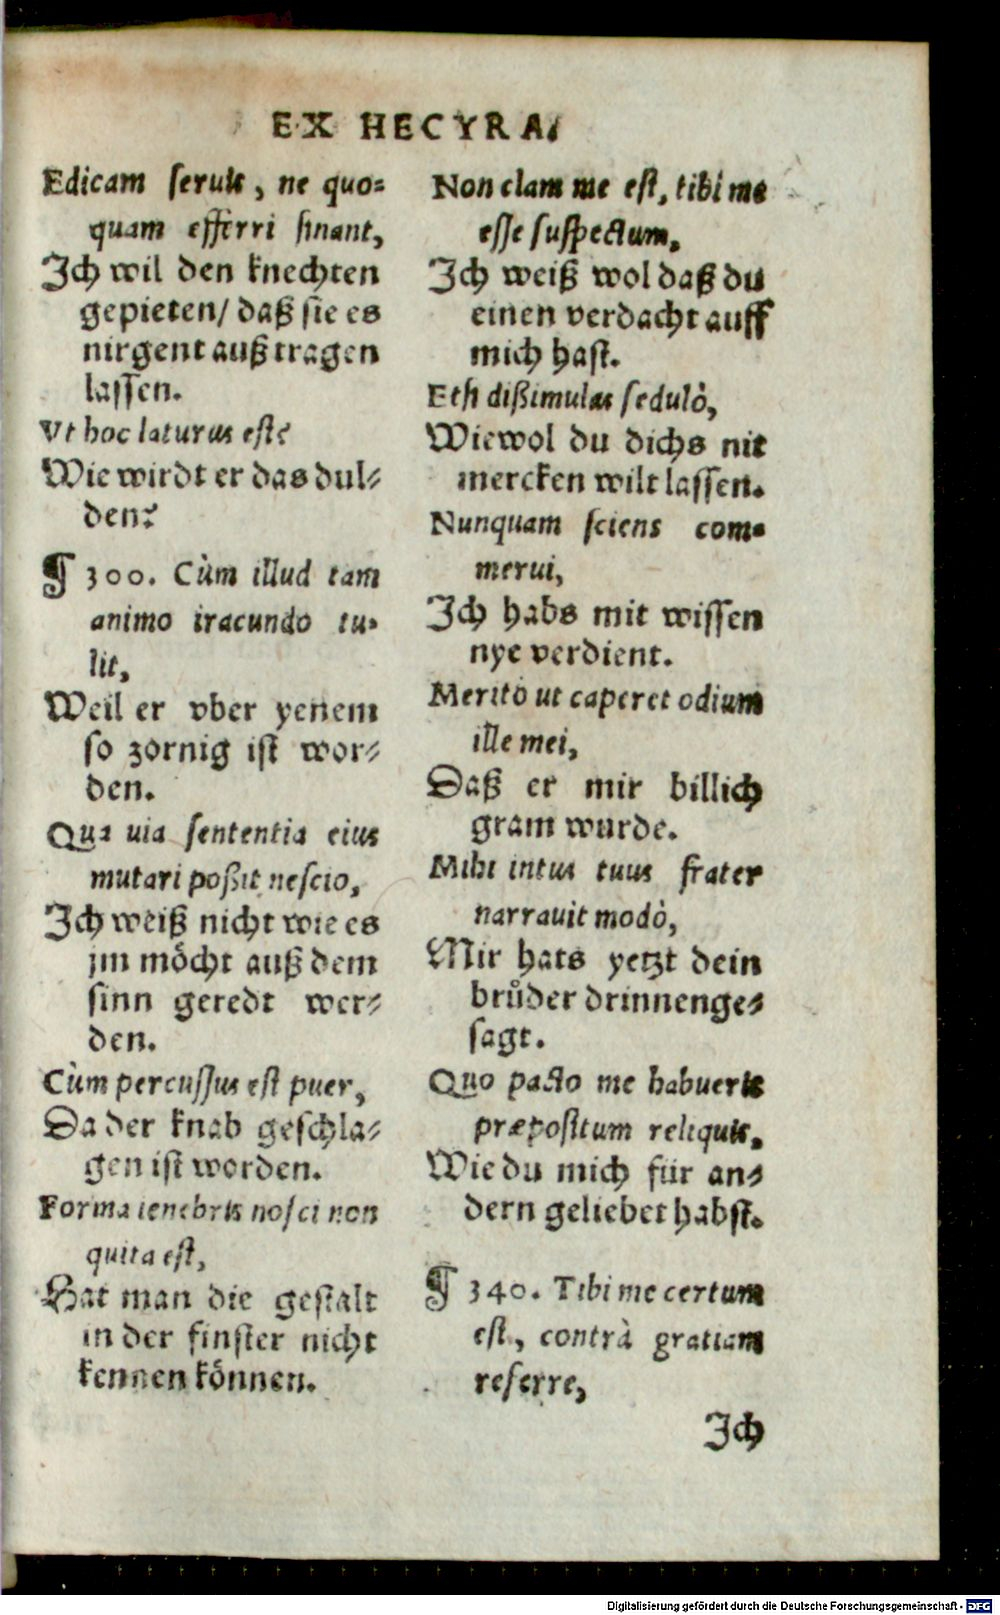 EX HECYRA.
Edicam seruis, ne quo-
quam efferri sinant,
Ich wil den knechten
gepieten/ daß sie es
nirgent auß tragen
lassen.
Vt hoc laturus est?
Wie wirdt er das dul-
den?
¶ 300. Cùm illud tam
animo iracundo tu-
lit,
Weil er vber yenem
so zornig ist wor-
den.
Qua uia sententia eius
mutari poßit nescio,
Ich weiß nicht wie es
jm möcht auß dem
sinn geredt wer-
den.
Cùm percussus est puer,
Da der knab geschla-
gen ist worden.
Forma tenebris nosci non
quita est,
Hat man die gestalt
in der finster nicht
kennen können.
Non clam me est, tibi me
esse suspectum,
Ich weiß wol daß du
einen verdacht auff
mich hast.
Etsi dißimulas sedulò,
Wiewol du dichs nit
mercken wilt lassen.
Nunquam sciens com-
merui,
Ich habs mit wissen
nye verdient.
Meritò ut caperet odium
ille mei,
Daß er mir billich
gram wurde.
Mihi intus tuus frater
narrauit modò,
Mir hats yetzt dein
brůder drinnen ge-
sagt.
Quo pacto me habueris
præpositum reliquis,
Wie du mich für an-
dern geliebet habst.
¶ 340. Tibi me certum
est, contrà gratiam
referre,
Ich
Digitalisierung gefördert durch die Deutsche Forschungsgemeinschaft - DFG